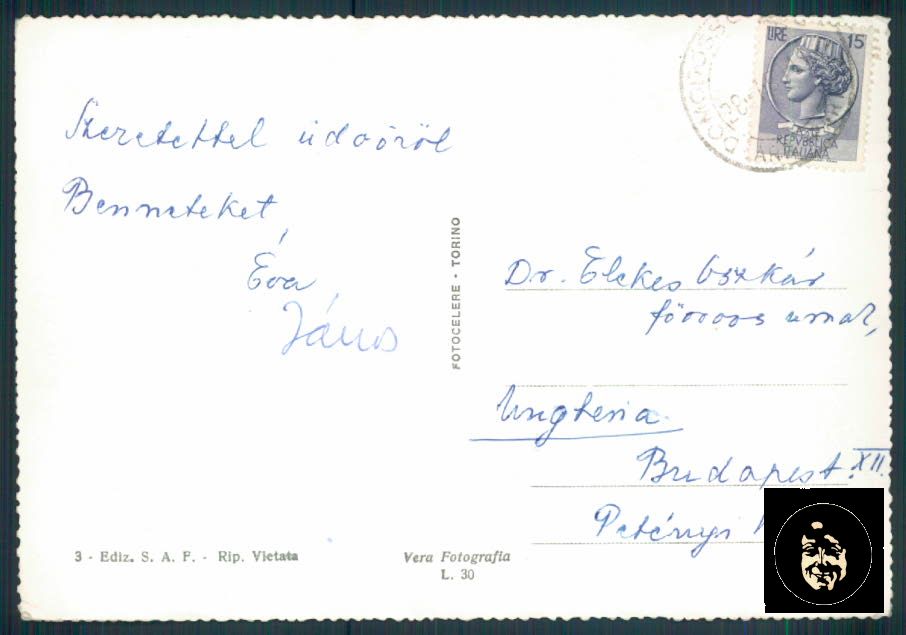 Szeretettel üdvözöl
Benneteket
Éva
János
3 - Ediz. S. A. F. - Rip. Vietata
Vera Fotografia
L. 30
FOTOCELERE - TORINO
LIRE 15
REPVBBLICA
ITALIANA
Dr. Elekes Oszkár
főorvos urnak,
Ungheria
Budapest XII.
Petényi